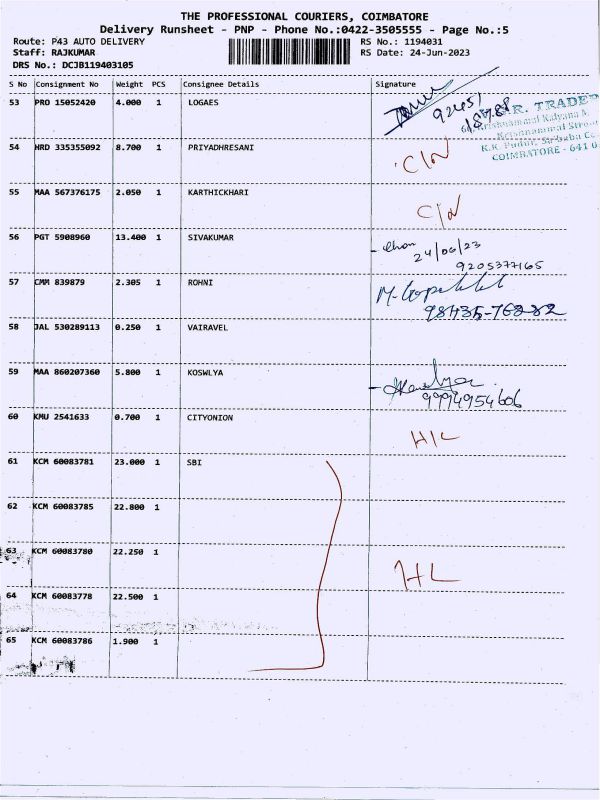 THE PROFESSIONAL COURIERS, COIMBATORE
Delivery Runsheet - PNP - Phone No.:0422-3505555 - Page No.:5
Route: P43 AUTO DELIVERY RS No.: 1194031
Staff: RAJKUMAR RS Date: 24-Jun-2023
DRS No.: DCJB119403105
S No Consignment No Weight PCS Consignee Details Signature
53 PRO 15052420 4.000 1 LOGAES
R. TRADE
Krishnammal
K.K. Pudur, Saibaba Co
COIMBATORE - 641 0
54 HRD 335355092 8.700 1 PRIYADHRESANI C/N
55 MAA 567376175 2.050 1 KARTHICKHARI C/N
56 PGT 5908960 13.400 1 SIVAKUMAR
24/06/23
9205377165
57 CMM 839879 2.305 1 ROHNI
58 JAL 530289113 0.250 1 VAIRAVEL
59 MAA 860207360 5.800 1 KOSWLYA
9994954606
60 KMU 2541633 0.700 1 CITYONION H/L
61 KCM 60083781 23.000 1 SBI
62 KCM 60083785 22.800 1
63 KCM 60083780 22.250 1 HL
64 KCM 60083778 22.500 1
65 KCM 60083786 1.900 1